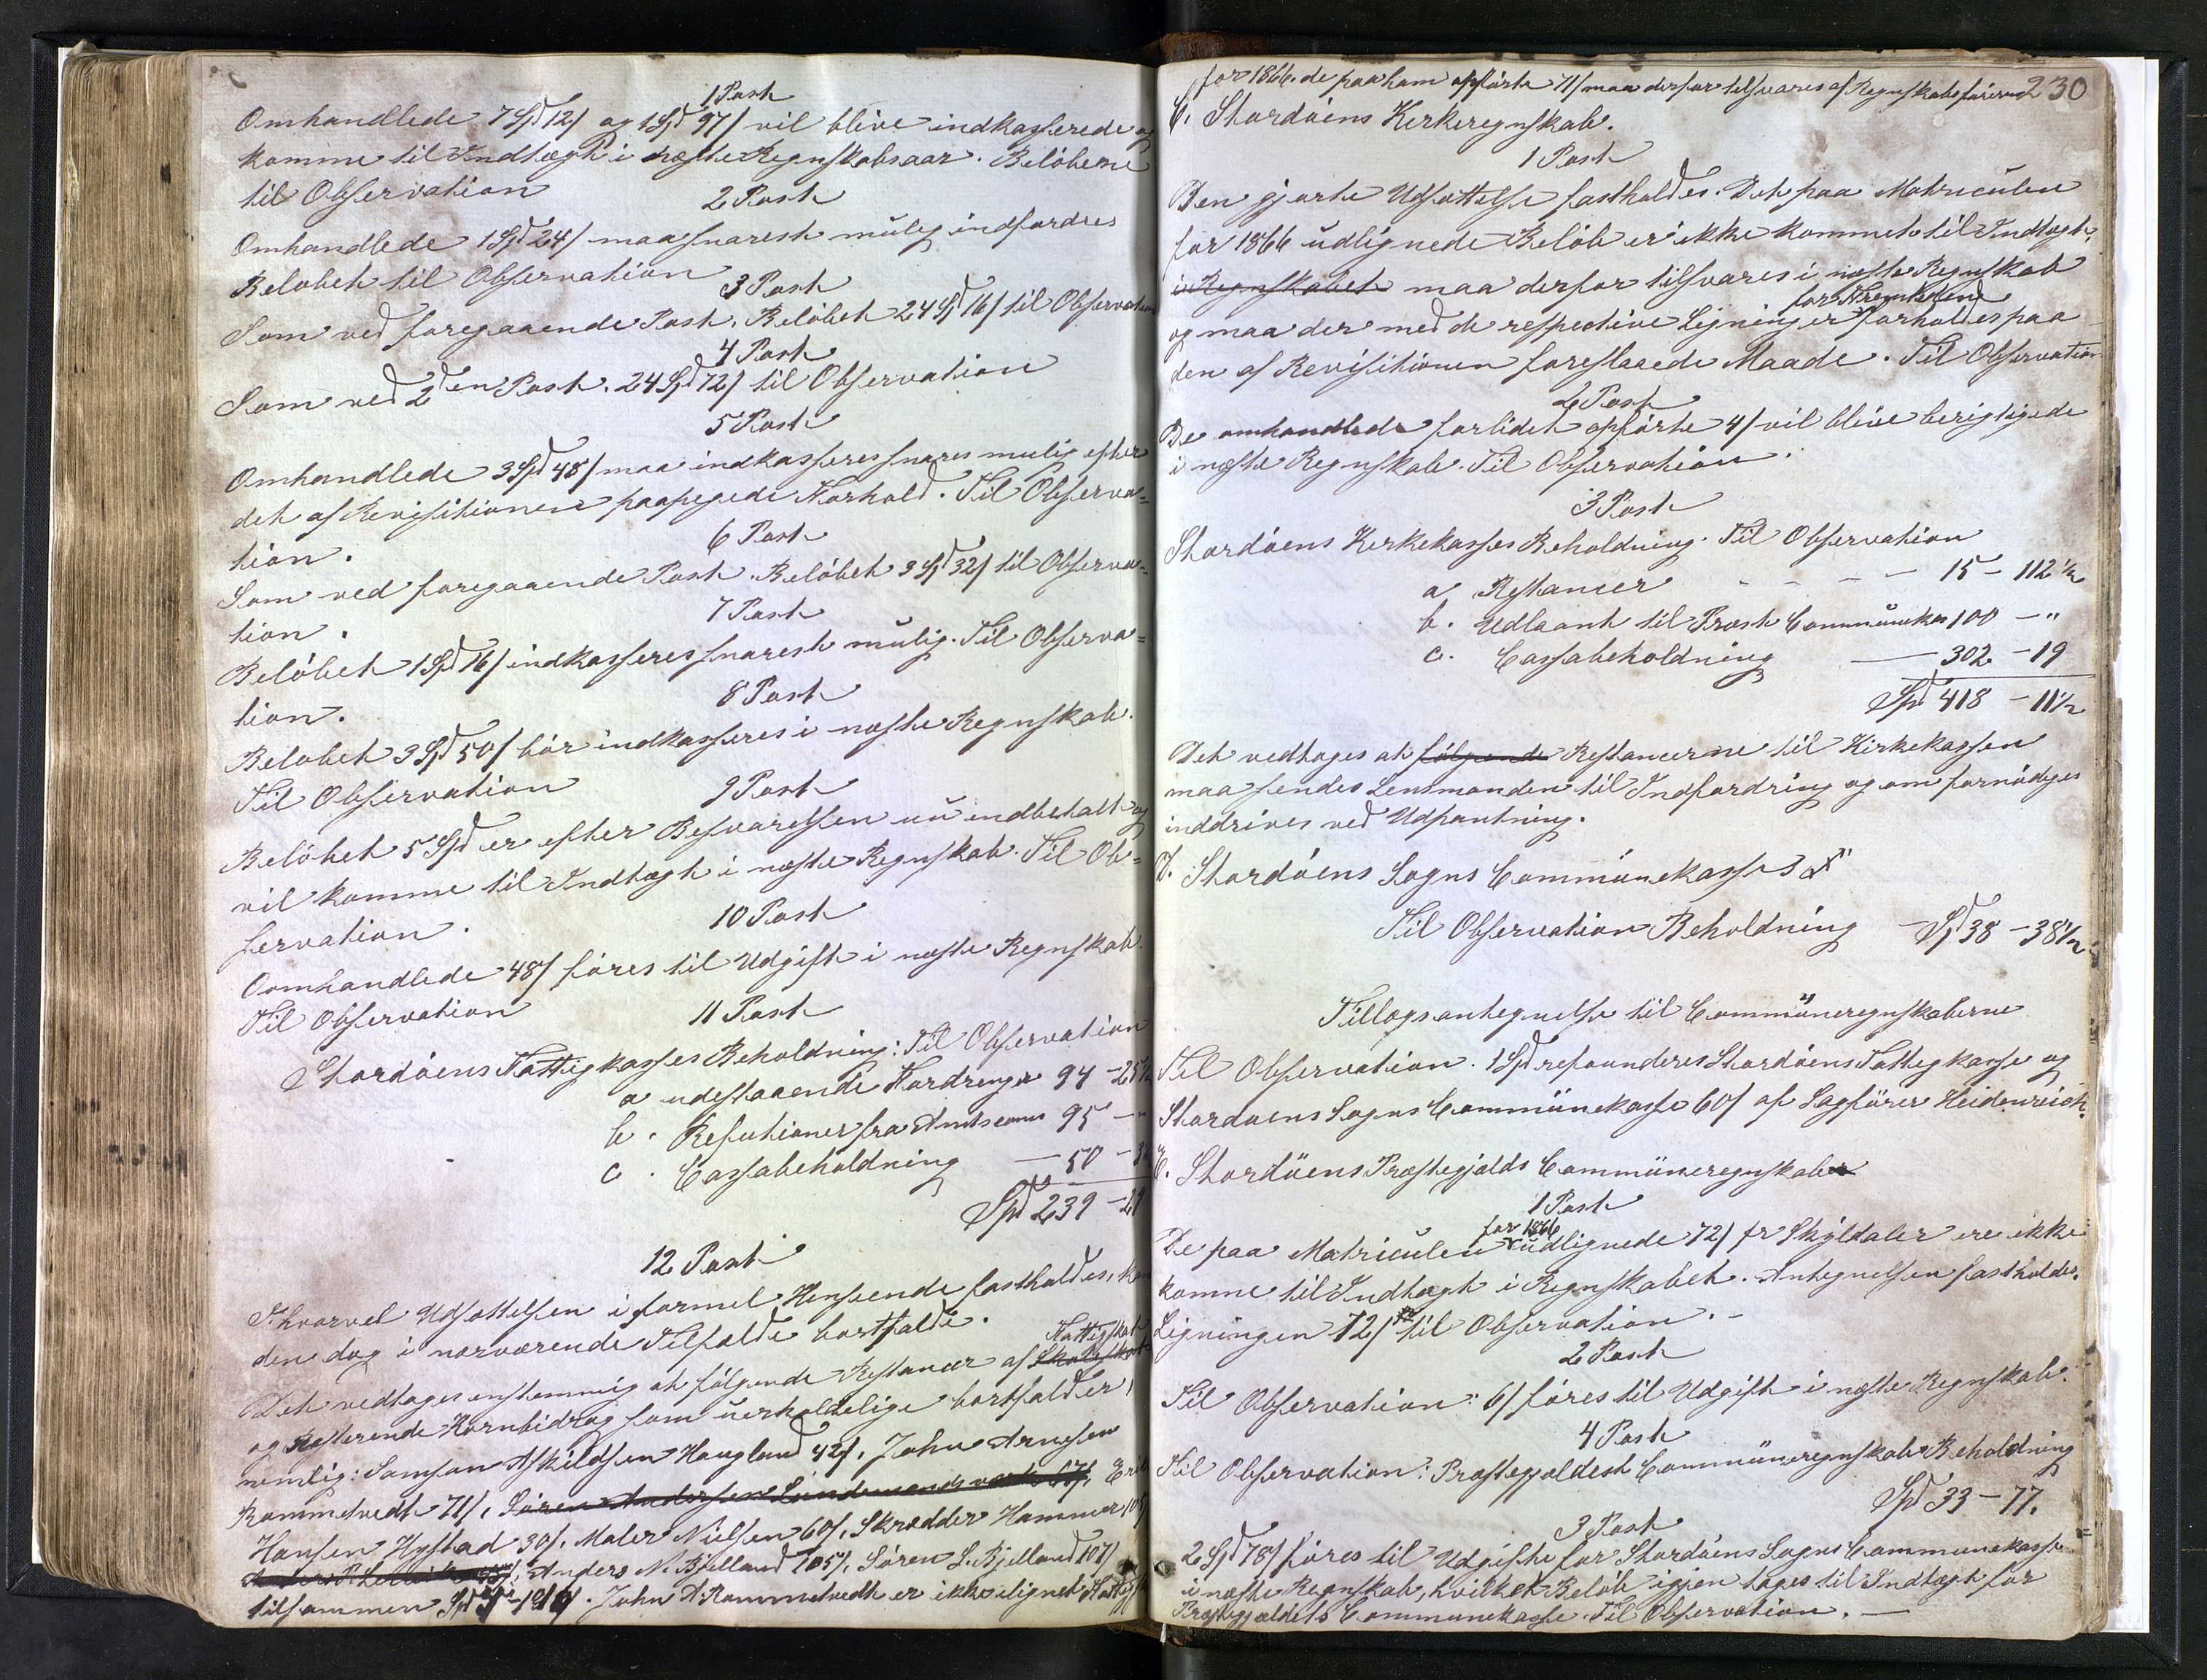 1 Post
Omhandlede 7 Spd 12/ og 1 Spd 97/ vil blive indkasserede og
komme til Indtægt i næste Regnskabsaar. Beløbene
til Observation
2 Post
Omhandlede 1 Spd 24/ maa snarest mulig indfordres
Beløbet til Observation
3 Post
Som ved foregaaende Post. Beløbet 24 Spd 16/ til Observation
4 Post
Som ved 2den Post. 24 Spd 72/ til Observation
5 Post
Omhandlede 3 Spd 48/ maa indkasseres snares mulig efter
det af Revisitionen paapegede Forhold. Til Observa=
tion.
6 Post
Som ved foregaaende Post. Beløbet 3 Spd 32/ til Observa=
tion.
7 Post
Beløbet 1 Spd 16/ indkasseres snarest mulig. Til Observa=
tion.
8 Post
Beløbet 3 Spd 50/ bør indkasseres i næste Regnskab.
Til Observation
9 Post
Beløbet 5 Spd er efter Besvarelsen nu indbetalt og
vil komme til Indtægt i næste Regnskab. Til Ob=
servation.
10 Post
Oomhandlede 48/ føres til Udgift i næste Regnskab.
Til Observation
11 Post
Stordøens Fattigkasses Beholdning: Til Observation
a udestaaende Fordringer 94 - 25½
b. Refutioner fra Amtscomm 95 - "
c. Cassabeholdning — 50 -
Spd 239 - 29
12 Post
Ihvorvel Udsættelsen i formel Henseende fastholdes, kan
den dog i nærværende Tilfælde bortfalde.
Fattigskat
Det vedtages enstemmig at følgende Restancer af Skoleskat
og resterende Kornbidrag som uerholdelige bortfalder,
nemlig: Samson Askildsen Hougland 42/, John Arnesen
Rommetvedt 71/, Søren Andersen Lundemandsværk 67/, Erik
Hansen Hystad 30/. Maler Nielsen 60/, Skrædder Hammer 105/
Anders N. Bjelland 105/, Søren L. Bjelland 107/
tilsammen Spd . John A Rommetvedt er ikke ilignet Fattigs
230
for 1866. de paa ham opførte 71/ maa derfor tilsvares af Regnskabsføreren
C. Stordøens Kirkeregnskab.
1 Post
Den gjorte Udsættelse fastholdes. Det paa Matriculen
for 1866 udlignede Beløb er ikke kommet til Indtægt,
i Regnskabet maa derfor tilsvares i næste Regnskab
for Fremtiden
og maa der med de respective Ligninger forholdes paa
den af Revisitionen foreslaaede Maade. Til Observation
2 Post
De omhandlede forlidet opførte 4/ vil blive berigtigede
i næste Regnskab. Til Observation.
3 Post
Stordøens Kirkekasses Beholdning. Til Observation
a Restancer - - - - 15 - 112½
b. Udlaant til Præst Communekas 100 - "
c. Cassabeholdning — 302 - 19
Spd 418 - 11½
Det vedtages at følgende Restancerne til Kirkekassen
maa sendes Lensmanden til Indfordring og om fornødeges
inddrives ved Udpantning.
D. Stordøens Sogns Communekasse 3
Til Observation Beholdning - Spd 38 - 38½
Tillægsantegnelse til Communeregnskaberne
Til Observation. 1 Spd refounderes Stordøens Fattigkasse og
Stordøens Sogns Communekasse 60/ af Sagfører Heidenreich.
E. Stordøens Præstegjælds Communeregnskab
1 Post
for 1866
De paa Matriculen udlignede 72/ pr Skyldaler ere ikke
komne til Indtægt i Regnskabet. Antegnelsen fastholdes.
Ligningen 72/ til Observation. -
2 Post
Til Observation: 6/ føres til Udgift i næste Regnskab.
4 Post
Til Observation: Præstegjeldest Communeregnskabs Beholdning
Spd 33 - 77.
3 Post
2 Spd 78/ føres til Udgift for Stordøens Sogns Communekasse
i næste Regnskab, hvilket Beløb igjen tages til Indtægt for
Præstegjældets Communekasse. Til Observation. —